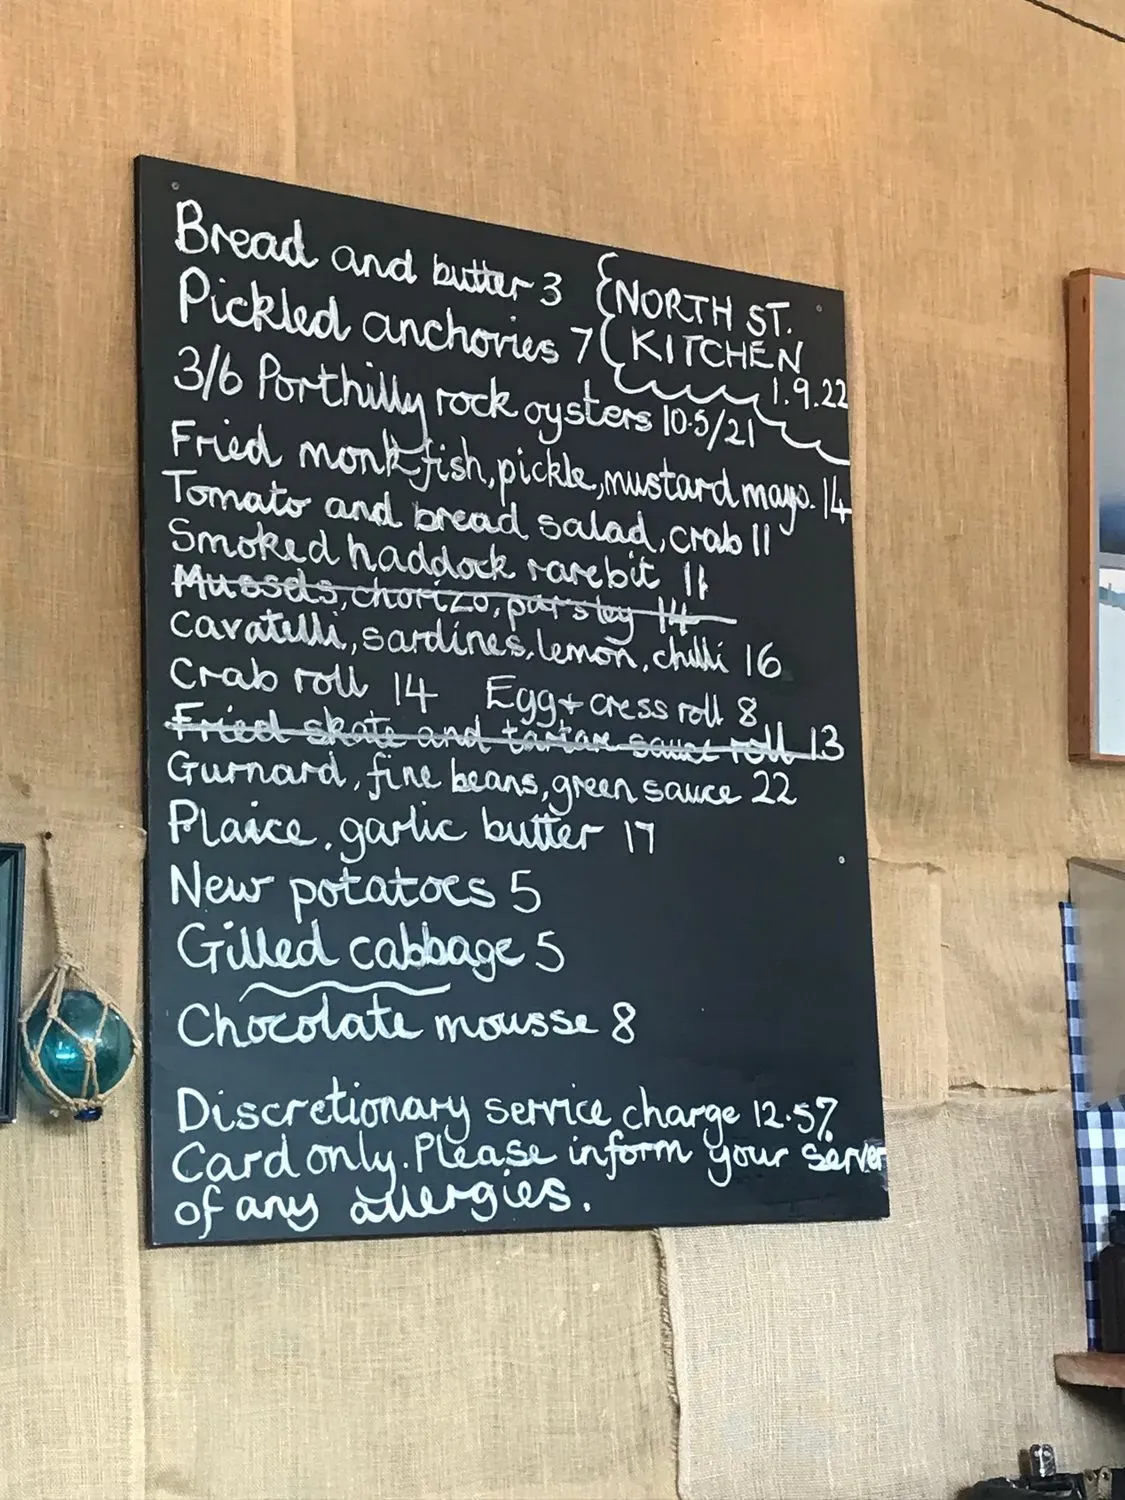 Bread and butter 3
NORTH ST.
KITCHEN
1.9.22
Pickled anchovies 7
3/6 Porthilly rock oysters 10.5/21
Fried monkfish, pickle, mustard mayo. 14
Tomato and bread salad, crab 11
Smoked haddock rarebit 11
Mussels, chorizo, parsley 14
Cavatelli, sardines, lemon, chilli 16
Crab roll 14 Egg + cress roll 8
Fried skate and tartar sauce roll 13
Gurnard, fine beans, green sauce 22
Plaice, garlic butter 17
New potatoes 5
Gilled cabbage 5
Chocolate mousse 8
Discretionary service charge 12.5%
Card only. Please inform your server
of any allergies.